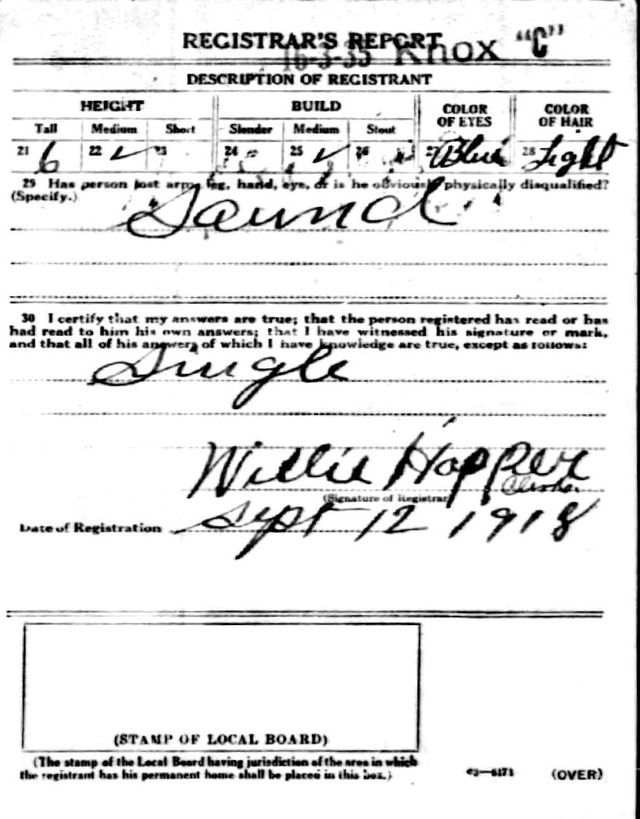 REGISTRAR'S REPORT
16-3-35 Knox "C"
DESCRIPTION OF REGISTRANT
HEIGHT BUILD COLOR OF EYES COLOR OF HAIR
Tall Medium Short Slender Medium Stout
21 6 22 ✓ 23 24 25 ✓ 26 27 Blue 28 Light
29 Has person lost arm, leg, hand, eye, or is he obviously physically disqualified?
(Specify.)
Sound
30 I certify that my answers are true; that the person registered has read or has
had read to him his own answers; that I have witnessed his signature or mark,
and that all of his answers of which I have knowledge are true, except as follows:
Single
Willie Hopper
(Signature of Registrar)
Date of Registration Sept 12 1918
(STAMP OF LOCAL BOARD)
(The stamp of the Local Board having jurisdiction of the area in which
the registrant has his permanent home shall be placed in this box.)
03—6171 (OVER)